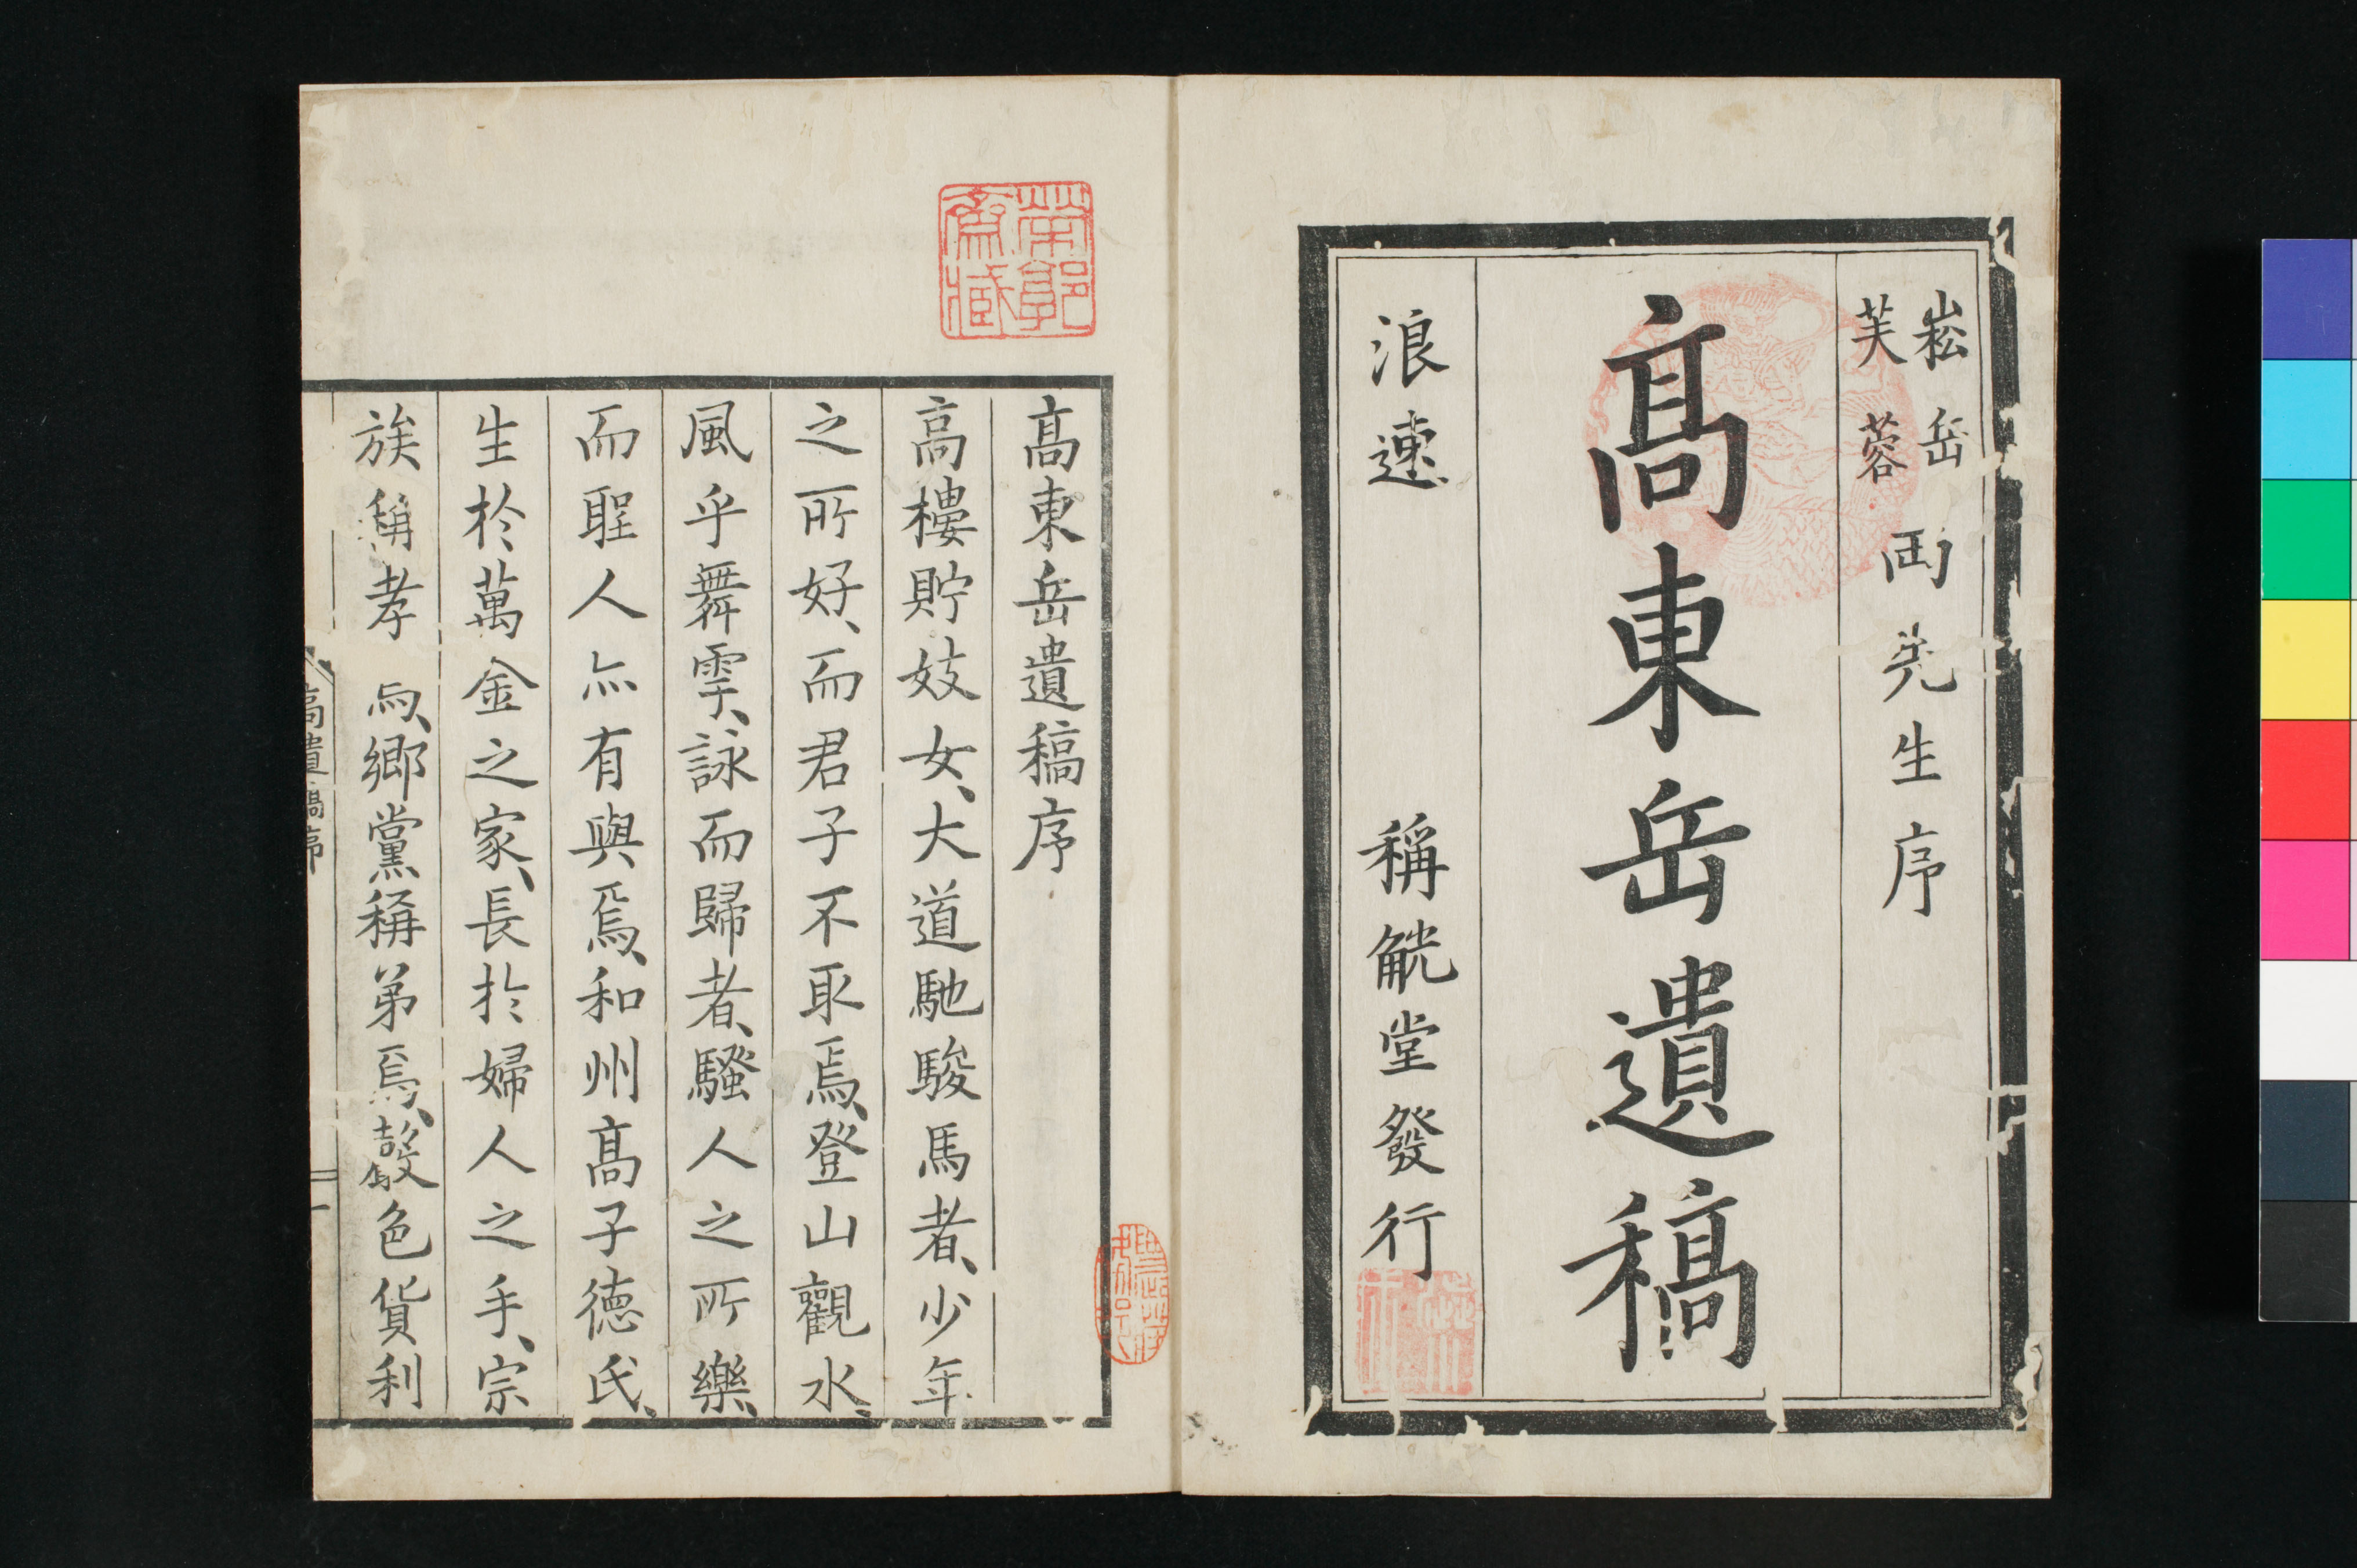 崧岳
芙蓉
両先生序
髙東岳遺稿
浪速 稱觥堂發行
髙東岳遺稿序
高樓貯妓女、大道馳駿馬者、少年
之所好、而君子不取焉、登山觀水、
風乎舞雩、詠而歸者、騷人之所樂、
而聖人亦有與焉、和州髙子徳氏、
生於萬金之家、長於婦人之手、宗
族稱孝焉、鄉黨稱弟焉、聲色貨利
高遺稿序
一